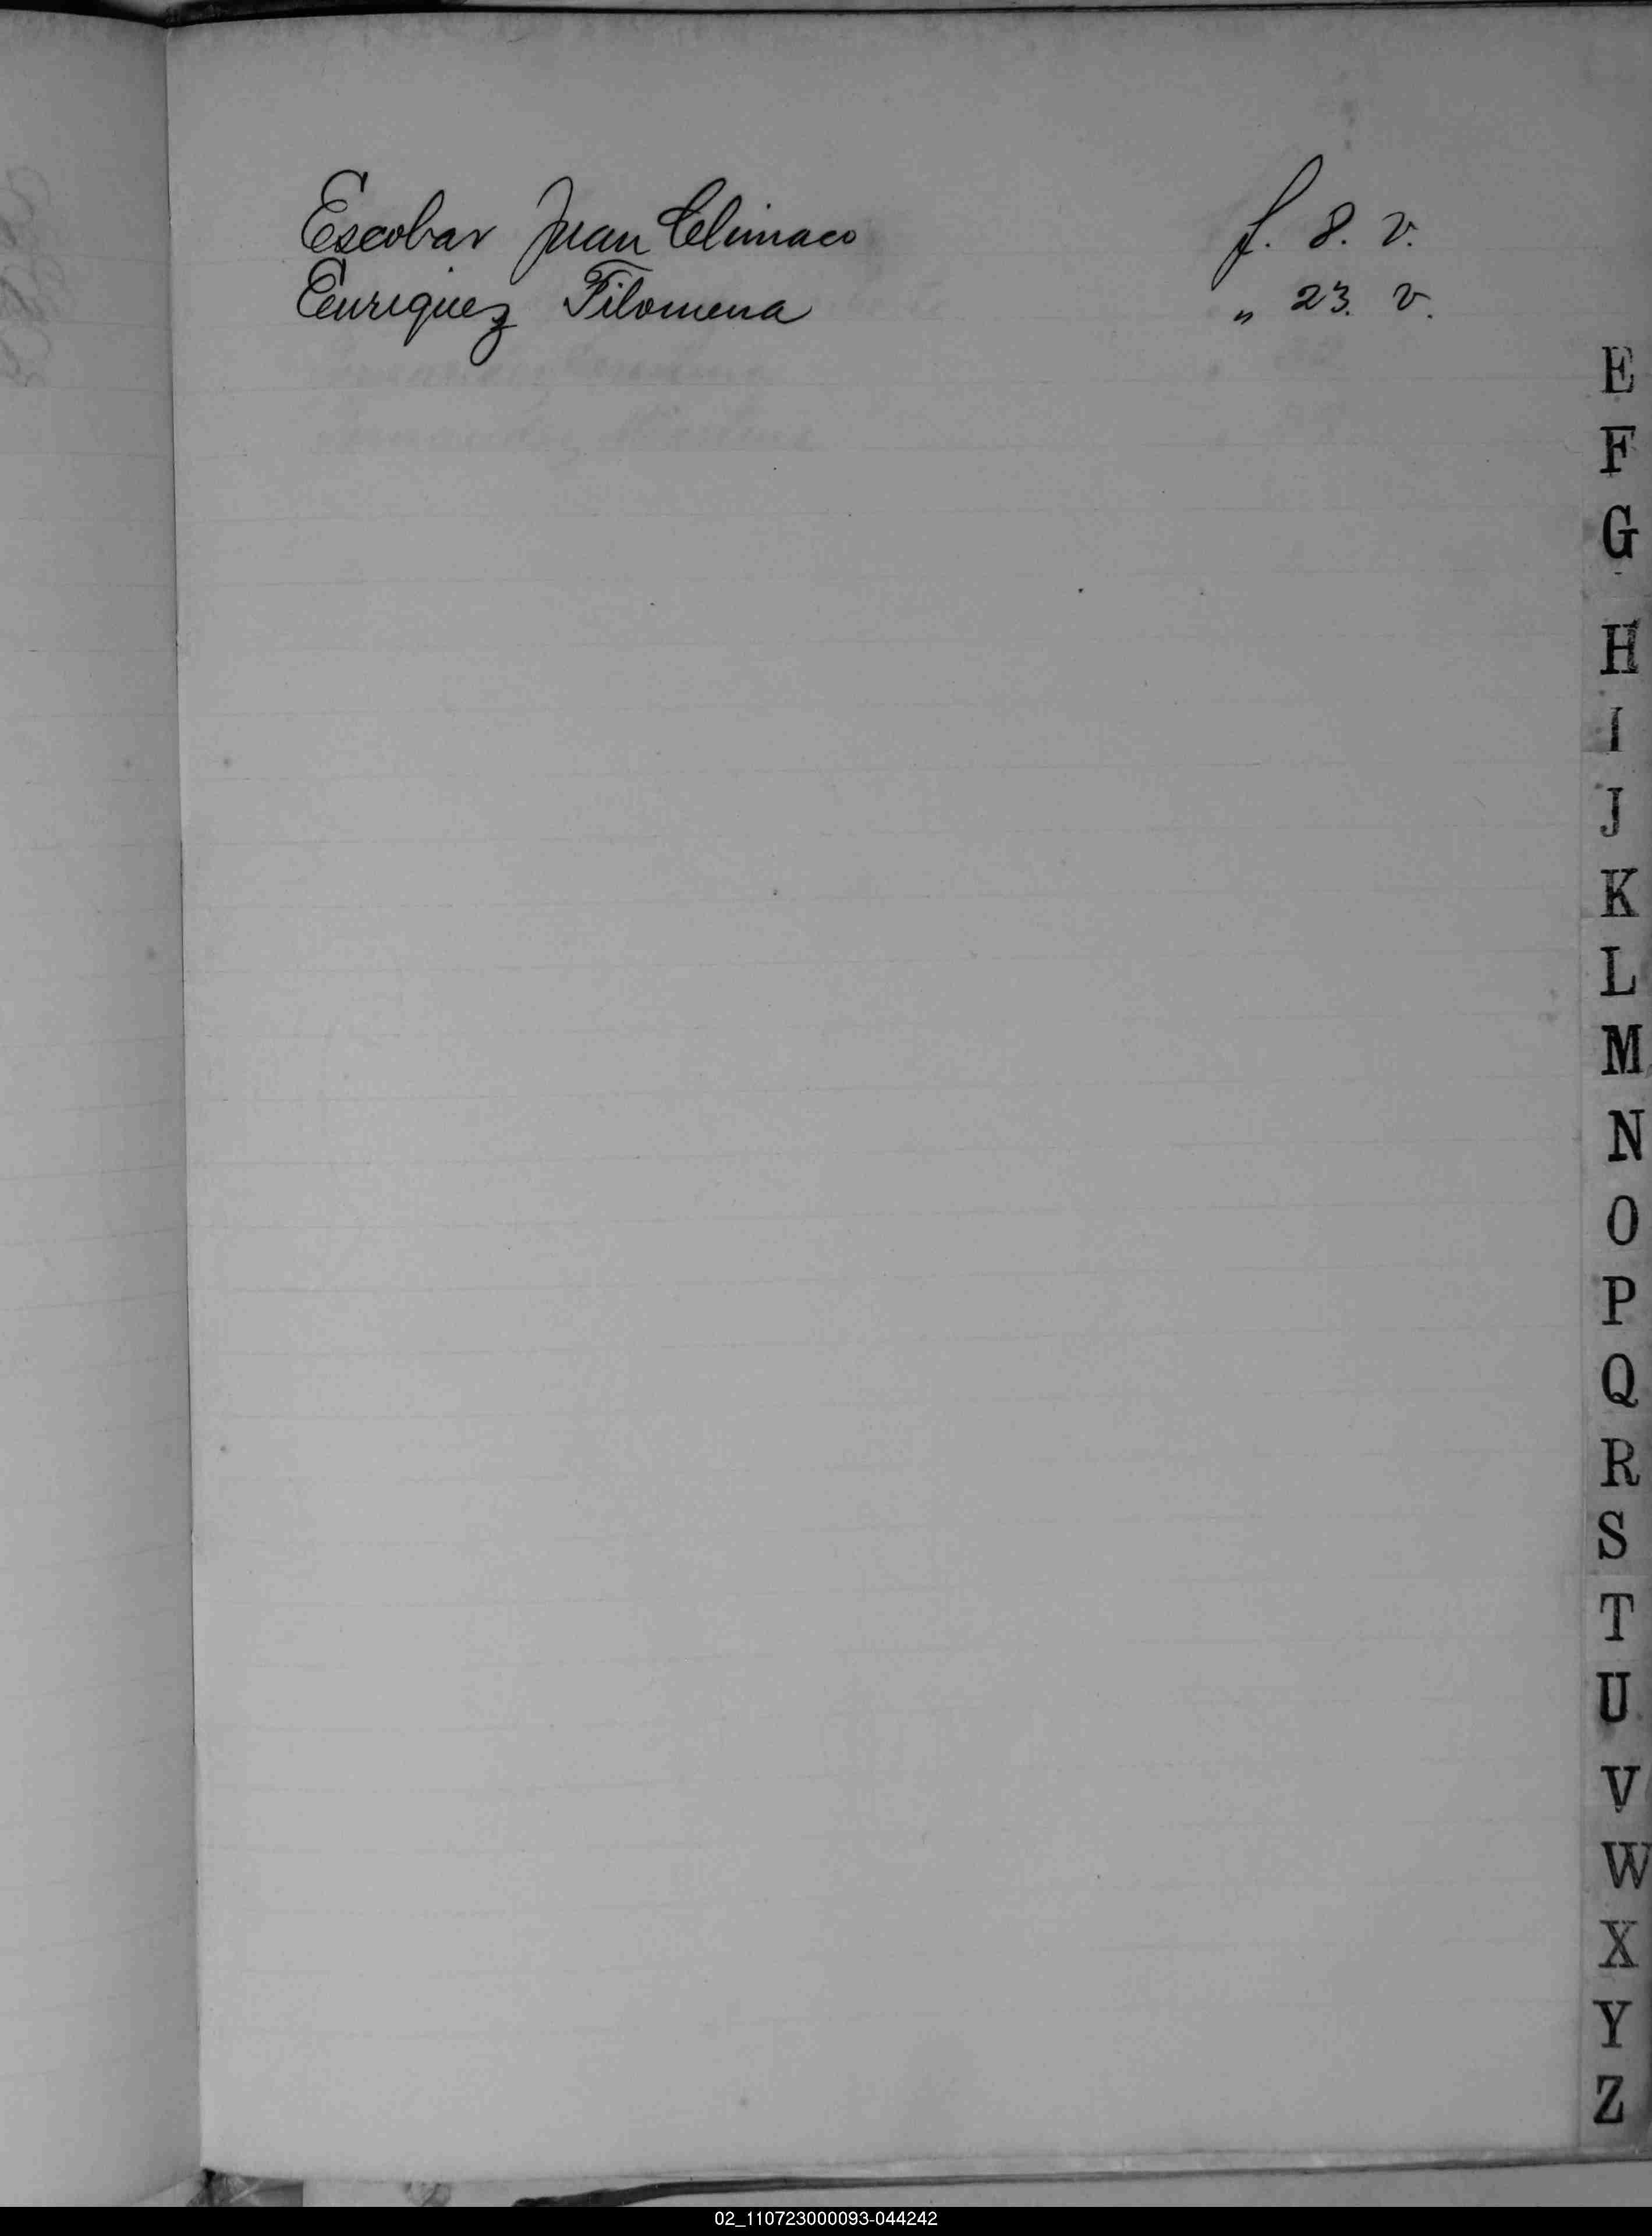 Escobar Juan Climaco f. 8. v.
Enriquez Filomena " 23. v.
E
F
G
H
I
J
K
L
M
N
O
P
Q
R
S
T
U
V
W
X
Y
Z
02_110723000093-044242